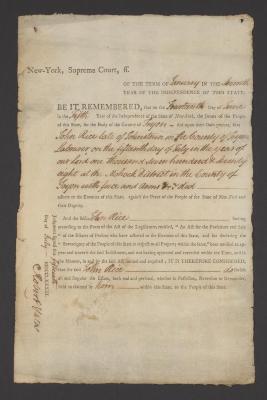 New-York, Supreme Court, ss.
OF THE TERM OF January IN THE
YEAR OF THE INDEPENDENCE OF THIS STATE;
BE IT REMEMBERED, that on the Fourteenth Day of June
in the fifth Year of the Independence of the State of New-York, the Jurors of the People
of this State, for the Body of the County of Tryon did upon their Oath present, that
John Rice late of Johnstown in the County of Tryon
Labourer, on the fifteenth day of July in the year of
our Lord one thousand seven hundred & seventy
eight at the Mohock District in the County of
Tryon with force and Arms &c. did
adhere to the Enemies of this State, against the Peace of the People of the State of New-York and
their Dignity.
And the said John Rice having
according to the Form of the Act of the Legislature, entitled, "An Act for the Forfeiture and Sale
"of the Estates of Persons who have adhered to the Enemies of this State, and for declaring the
"Sovereignty of the People of this State in respect to all Property within the same," been
IT IS THEREFORE CONSIDERED,
that the said John Rice do
forfeit all and singular the Estate, both real and personal, whether in Possession, Reversion or Remainder,
held or claimed by him within this State, to the People of this State.
Judgment signed the fifteenth
Day of July